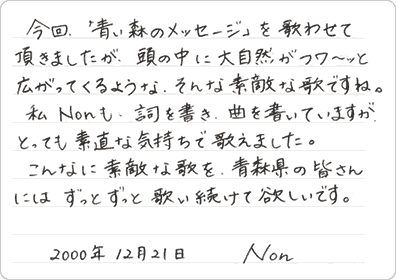 今回、「青い森のメッセージ」を歌わせて
頂きましたが、頭の中に大自然がつワ〜ッと
広がってくるような、そんな素敵な歌ですね。
私Nonも、詞を書き、曲を書いていますが、
とっても素直な気持ちで歌えました。
こんなに素敵な歌を、青森県の皆さん
には ずっとずっと歌い続けて欲しいです。
2000年 12月21日 Non